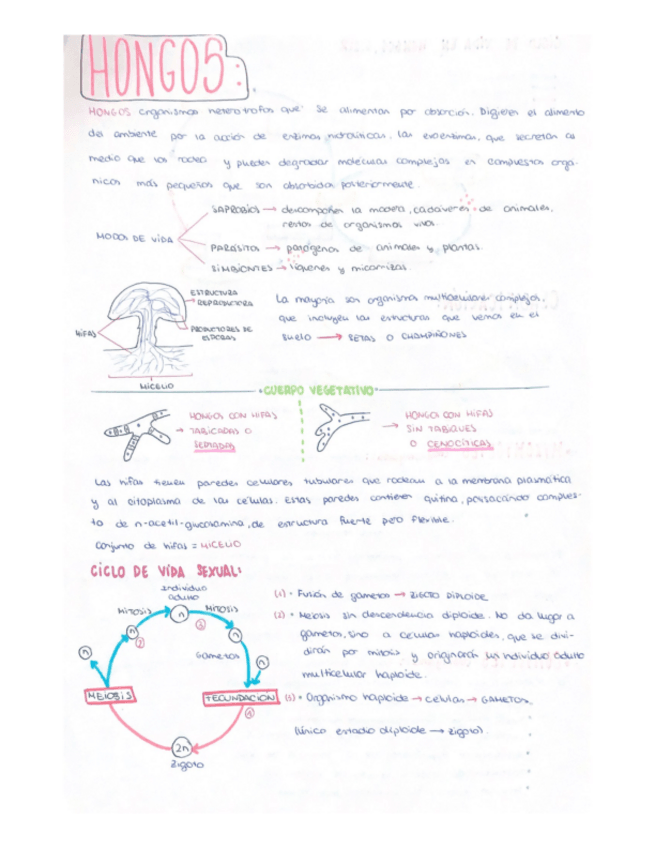 HONGOS:
HONGOS organismos heterótrofos que se alimentan por absorción. Digieren el alimento
del ambiente por la acción de enzimas hidrolíticas, las exoenzimas, que secretan al
medio que los rodea y pueden degradar moléculas complejas en compuestos orgá-
nicos más pequeños que son absorbidos posteriormente.
SAPROBIOS → descomponen la madera, cadáveres de animales,
restos de organismos vivos.
MODOS DE VIDA
PARÁSITOS → patógenos de animales y plantas.
SIMBIONTES → líquenes y micorrizas.
ESTRUCTURA
REPRODUCTORA
HIFAS
PRODUCTORES DE
ESPORAS
MICELIO
La mayoría son organismos multicelulares complejos,
que incluyen las estructuras que vemos en el
suelo → SETAS O CHAMPIÑONES
CUERPO VEGETATIVO
HONGOS CON HIFAS
→ TABICADAS O
SEPTADAS
HONGOS CON HIFAS
→ SIN TABIQUES
O CENOCÍTICAS
Las hifas tienen paredes celulares tubulares que rodean a la membrana plasmática
y al citoplasma de las células. Estas paredes contienen quitina, polisacárido compues-
to de n-acetil-glucosamina, de estructura fuerte pero flexible.
Conjunto de hifas = MICELIO
CICLO DE VIDA SEXUAL:
Individuo
adulto
MITOSIS
n
MITOSIS
n
2
3
n
n
Gametos
n
MEIOSIS
FECUNDACION
1
2n
Zigoto
(1) • Fusión de gametos → ZIGOTO DIPLOIDE
(2) • Meiosis sin descendencia diploide. No da lugar a
gametos, sino a células haploides, que se divi-
dirán por mitosis y originarán un individuo adulto
multicelular haploide.
(3) • Organismo haploide → células → GAMETOS.
(único estadío diploide → zigoto).